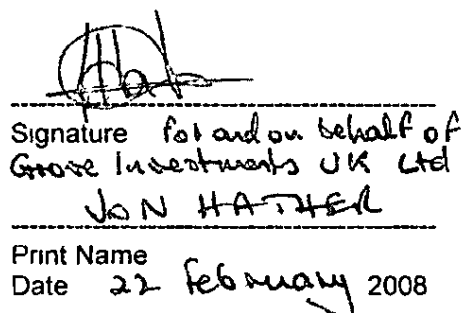 Signature for and on behalf of
Grove Investments UK Ltd
JON HATHER
Print Name
Date 22 February 2008